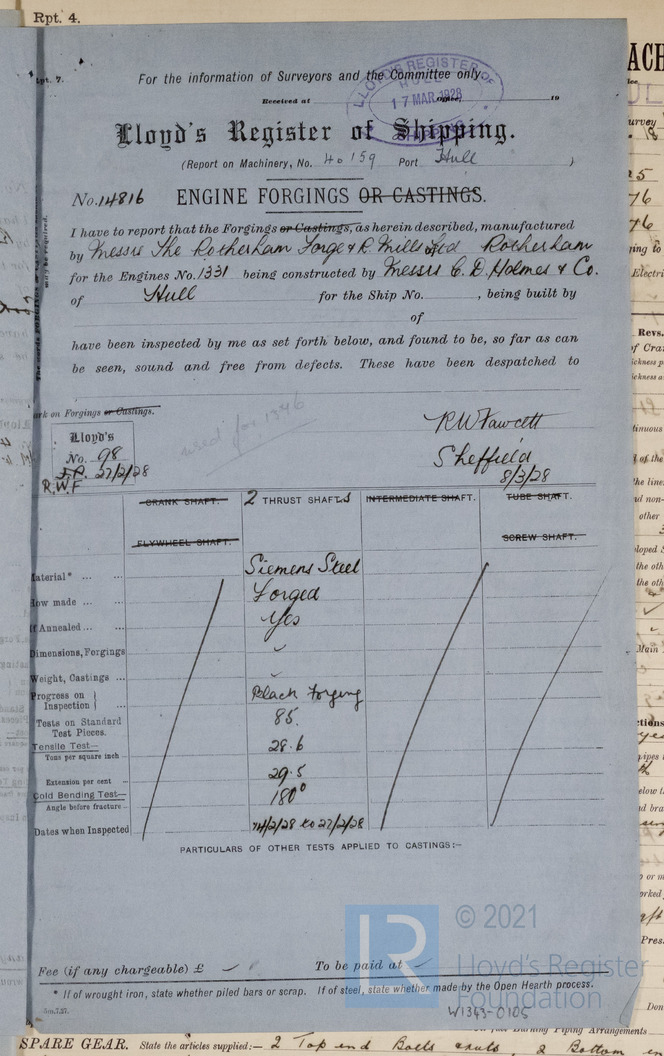 Rpt. 4.
Rpt. 7.
For the information of Surveyors and the Committee only.
Received at 19
LLOYD'S REGISTER OF
HULL
17 MAR 1928
Lloyd's Register of Shipping.
(Report on Machinery, No. 40159 Port Hull )
No. 14816 ENGINE FORGINGS OR CASTINGS.
I have to report that the Forgings or Castings, as herein described, manufactured
by Messrs The Rotherham Forge & R. Mills Ltd Rotherham
for the Engines No. 1331 being constructed by Messrs C. D. Holmes & Co.
of Hull for the Ship No. , being built by
of
have been inspected by me as set forth below, and found to be, so far as can
be seen, sound and free from defects. These have been despatched to
ark on Forgings or Castings.
used for 1346
Lloyd's
No. 98
F.P. 27/2/28
R.W.F
RW Fawcett
Sheffield
8/3/28
CRANK SHAFT. 2 THRUST SHAFTS INTERMEDIATE SHAFT. TUBE SHAFT.
FLYWHEEL SHAFT. SCREW SHAFT.
Material* ... ... Siemens Steel
How made ... ... Forged
If Annealed ... ... Yes
Dimensions, Forgings
Weight, Castings ...
Progress on Inspection } Black Forging
Tests on Standard Test Pieces. 85.
Tensile Test—
Tons per square inch 28.6
Extension per cent 29.5
Cold Bending Test—
Angle before fracture 180°
Dates when Inspected 14/2/28 to 27/2/28
PARTICULARS OF OTHER TESTS APPLIED TO CASTINGS:—
Fee (if any chargeable) £ To be paid at
* If of wrought iron, state whether piled bars or scrap. If of steel, state whether made by the Open Hearth process.
© 2021
Lloyd's Register
Foundation
W1343-0105
SPARE GEAR. State the articles supplied:— 2 Top end Bolts & nuts 2 Bottom